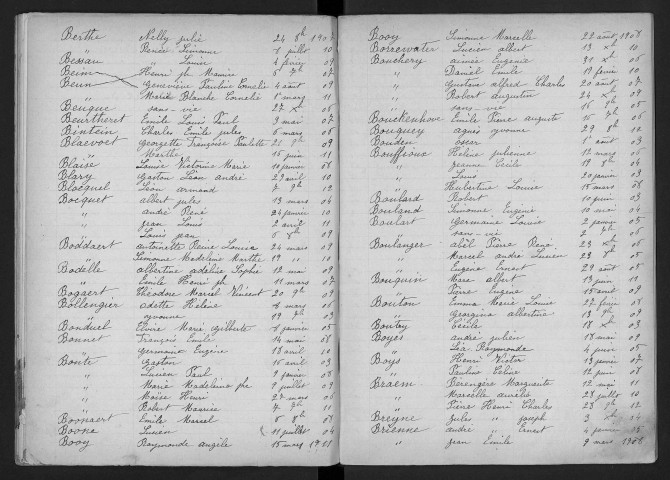 Berthe Nelly julie 24 8b 190
" Renée Simonne 1 juillet 10
Bessau " Louise 4 février 09
Beun Henri jh Maurice 6 7b 07
Beun Geneviève Pauline Cornélie 4 août 09
" Marie Blanche Cornélie 1 mars 11
Beugue sans-vie 27 Xb 06
Beurtheret Emile Louis Paul 9 mai 07
Béntein Charles Emile jules 6 mars 06
Blaevoet Georgette Françoise Paulette 21 9b 09
" Marthe 15 juin 11
Blaise Louise Victorine Marie 10 janvier 08
Blary Gaston Léon andré 29 avril 10
Blocquel Léon armand 7 9b 12
Bocquet albert jules 13 mars 04
" andré René 24 janvier 10
" jean Louis 2 avril 11
" Louis jean 6 8b 09
Boddaert antoinette Reine Louise 24 mars 09
" Simonne Madeleine Marthe 19 " 10
Bodelle albertine adeline Sophie 12 mai 09
" Emile Henri jh 11 mars 07
Bogaert Théodore Marcel Vincent 20 9b 09
Bollengier Odette Hélène 6 mars 06
" yvonne 19 9b 03
Bonduel Elvire Marie Gilberte 6 janvier 05
Bonnet François Emile 14 mai 08
" Germaine Eugénie 18 avril 10
Bonte Gaston 15 avril 03
" Lucien Paul 9 janvier 08
" Marie Madeleine jh 9 juillet 09
" Moïse Henri 27 mars 06
" Robert Maurice 7 9b 11
Boonaert Emile Marcel 6 8b 08
Boone Lucien 11 juillet 04
Booy Raymonde angèle 15 mars 1911
Booy Simonne Marcelle 22 août 1908
Borrewater Lucien albert 13 Xb 10
Bouchery aimée Eugénie 31 Xb 06
" Daniel Emile 19 février 10
" Gustave alfred Charles 20 août 07
" Robert augustin 24 Xb 09
" sans-vie 16 8b 05
Bouckenhove Emile Pierre auguste 15 7b 06
Bouquey agnès yvonne 29 8b 10
Bouden oscar 1 août 03
Bouffioux Hélène julienne 12 mars 06
" jeanne Cécile 19 8b 04
" Louis 20 janvier 03
" Hubertine Louise 15 mars 08
Boulard Robert 10 juin 03
Bouland Simonne Eugénie 10 mai 04
Boulart Germaine Louise 2 janvier 05
" sans-vie 2 7b 06
Boulanger abel Pierre René 23 Xb 05
" Marcel andré Lucien 23 8b 05
" Eugène Ernest 29 août 05
Bouquin Marc albert 13 juin 11
" Pierre Eugène 15 avril 09
Bouton Emma Marie Louise 27 février 08
" Georgina albertine 13 9b 09
Boutoy Cécile 18 Xb 03
Boyes andré julien 18 mai 09
" Léa Raymonde 4 janvier 05
Boys Henri Victor 13 janvier 07
" Pauline Céline 12 juin 08
Braem Bérengère Marguerite 12 mai 11
" Marcelle aurélie 28 juillet 10
" Pierre Henri Charles 23 9b 12
Breyne jules " joseph 3 Xb 04
Brienne andré " Ernest 4 janvier 13
" jean Emile 9 mars 1908